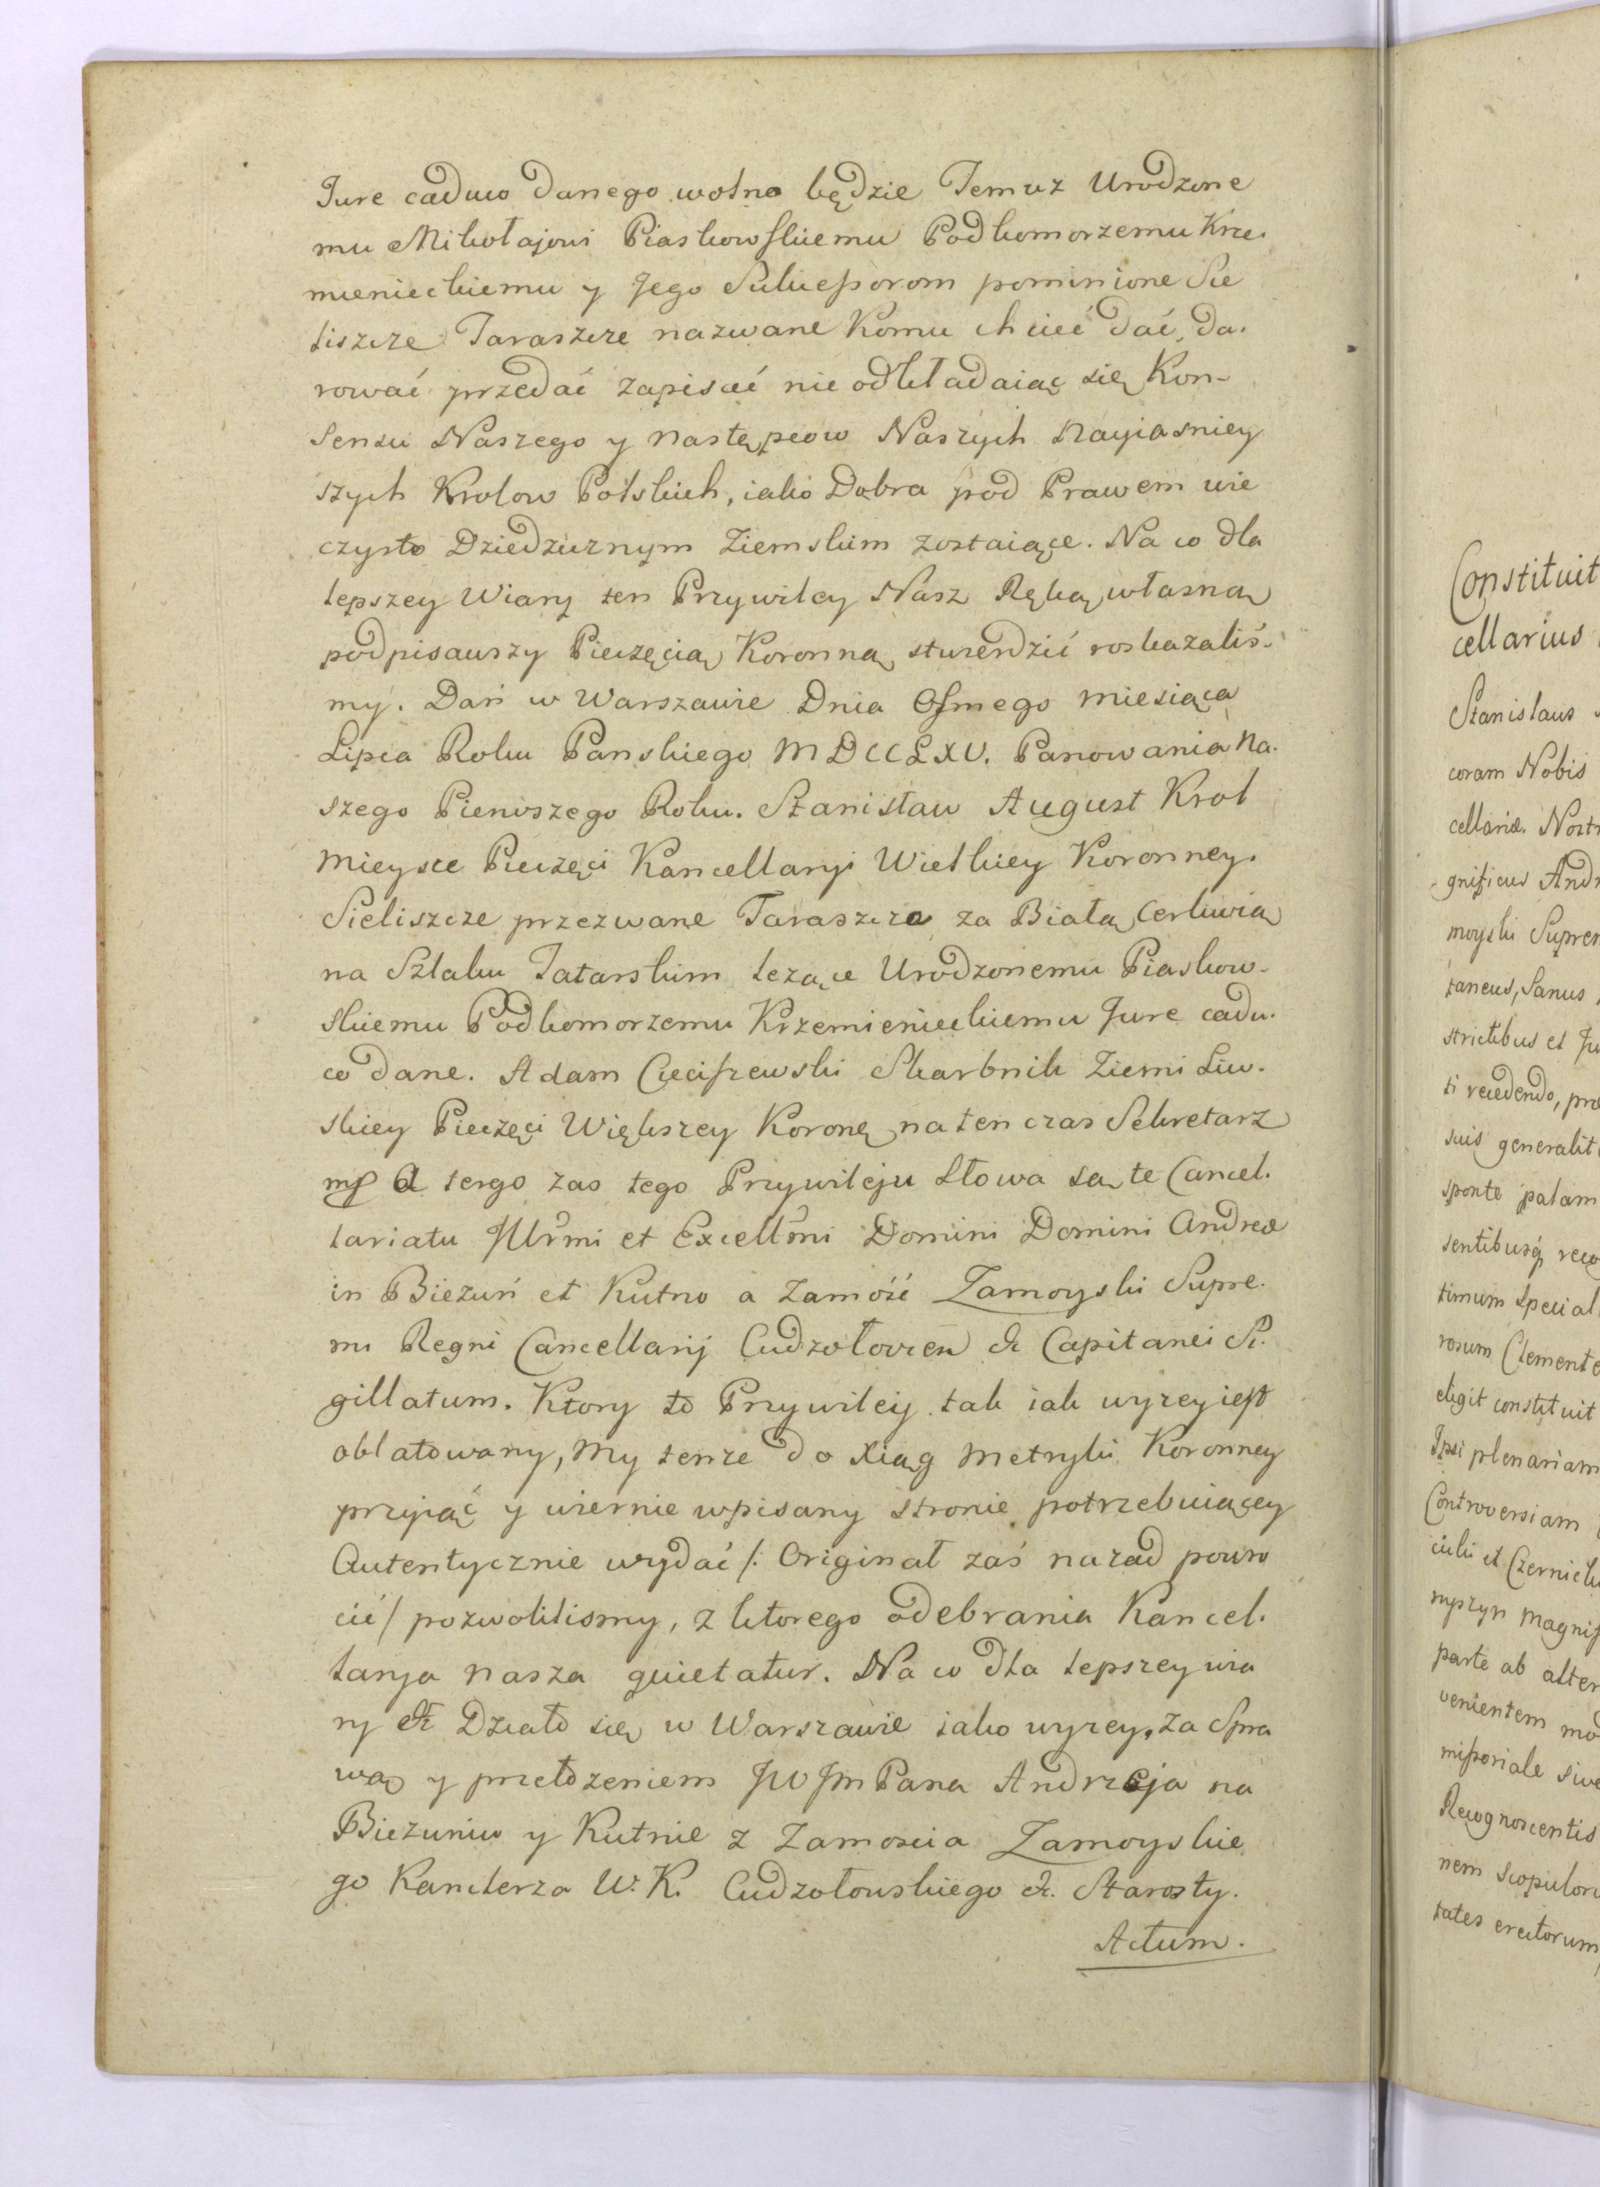 Jure caduco danego wolno będzie Temuz Urodzone
mu Mikołajowi Piaskowskiemu Podkomorzemu Krze-
mienieckiemu y Jego Sukcessorom pominione Sie
liszcze Taraszcze nazwane Komu chcieć dać, da-
rować przedać zapisać nie odkładaiąc się Kon-
sensu Naszego y następcow Naszych Nayiasniey
szych Krolow Polskich, iako Dobra pod Prawem wie
czysto Dziedzicznym Ziemskim zostaiące. Na co dla
lepszey Wiary ten Przywiley Nasz Ręką własną
podpisawszy Pieczęcią Koronną stwierdzić roskazaliś-
my. Dań w Warszawie Dnia Osmego Miesiąca
Lipca Roku Panskiego MDCCLXV. Panowania Na-
szego Pierwszego Roku. Stanisław August Krol
Mieysce Pieczęci Kancellaryi Wielkiey Koronney.
Sieliszcze przezwane Taraszcza za Białą Cerkwią
na Szlaku Tatarskim leżące Urodzonemu Piaskow-
skiemu Podkomorzemu Krzemienieckiemu Jure cadu-
co dane. Adam Cieciszewski Skarbnik Ziemi Liw-
skiey Pieczęci Większey Koronę na ten czas Sekretarz
mp A tergo zas tego Przywileju Słowa są te Cancel-
lariatu Jllr̃mi et Excellm̃i Domini Domini Andreæ
in Bieżuń et Kutno a Zamość Zamoyski Supre-
mi Regni Cancellarij Cudzołovien &c Capitanei Si-
gillatum. Ktory to Przywiley tak iak wyzey iest
oblatowany, My tenze do Xiąg Metryki Koronney
przyiąć y wiernie wpisany stronie potrzebuiącey
Autentycznie wydać /: Originał zaś nazad powro
cić / pozwolilismy, z ktorego odebrania Kancel-
larya nasza quietatur. Na co dla lepszey wia
ry &c Działo się w Warszawie iako wyzey, za Spra
wą y przełozeniem JWJm Pana Andrzeja na
Bieżuniu y Kutnie z Zamoscia Zamoyskie
go Kanclerza W. K. Cudzołouskiego &c. Starosty.
Actum.
Constituit
cellarius
Stanislaus
coram Nobis
cellariæ Nostr
gnificus Andr
moyski Suprem
taneus, Sanus
strictibus et Ju
ti recedendo, præ
suis generalit
sponte palam
sentibusq reco
timum Special
rosum Clemente
elegit constituit
Ipsi plenariam
Controversiam
cicki et Czernick
myszyn Magnif
parte ab alter
venientem mod
missoriale sive
Recognoscentis
nem scopuloru
tates erectorum